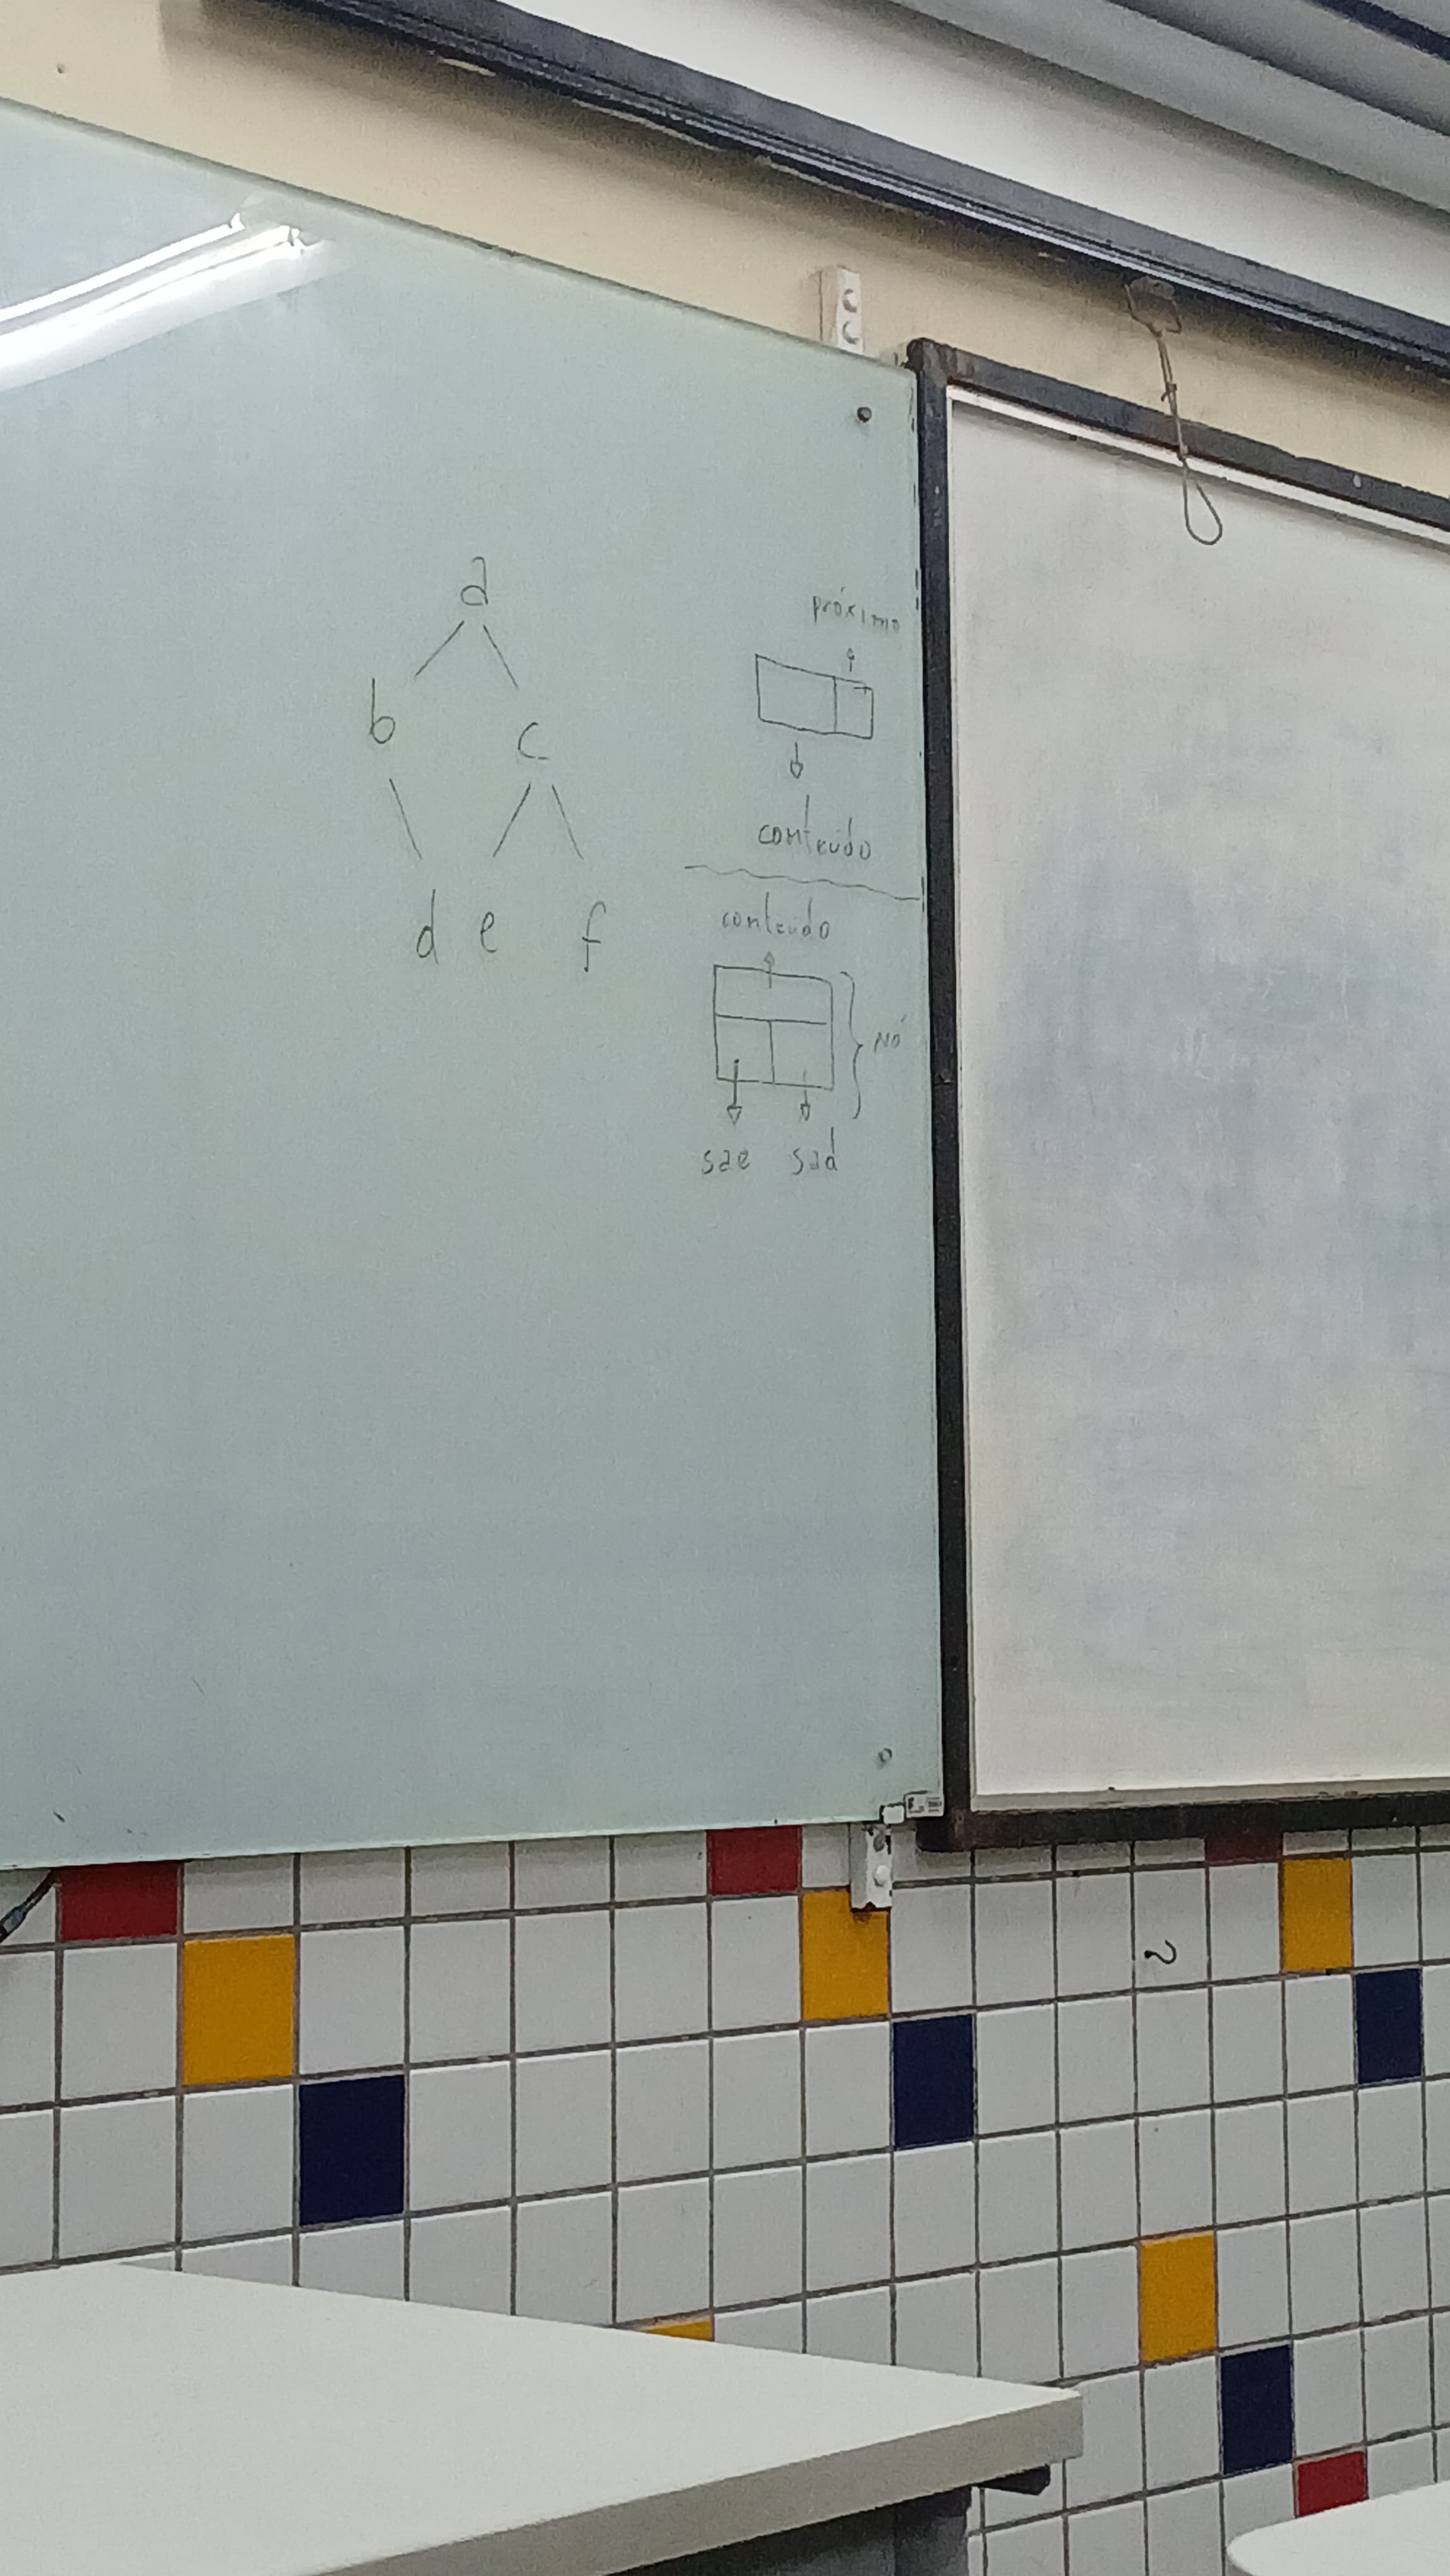 a
b c
d e f
próximo
conteúdo
conteúdo
nó
sae sad